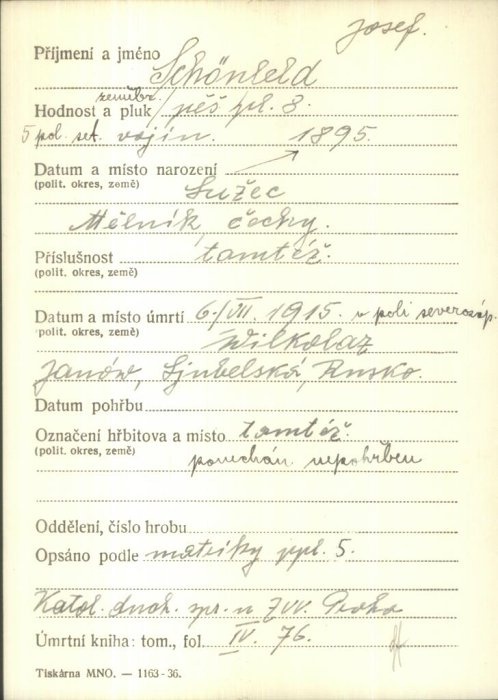 Josef.
Příjmení a jméno Schönfeld
zeměbr.
Hodnost a pluk pěš pl. 8.
5 pol. set. vojín. 1895.
Datum a místo narození
(polit. okres, země) Lužec
Mělník, čechy.
Příslušnost tamtéž.
(polit. okres, země)
Datum a místo úmrtí 6./VII. 1915. v poli severozáp.
(polit. okres, země) Wilkolaz
Janów, Ljubelská, Rusko.
Datum pohřbu
Označení hřbitova a místo tamtéž.
(polit. okres, země) ponechán nepohřben
Oddělení, číslo hrobu
Opsáno podle matriky ppl. 5.
Katol. duch. spr. u ZVV. Praha
Úmrtní kniha: tom., fol. IV. 76.
Tiskárna MNO. — 1163-36.